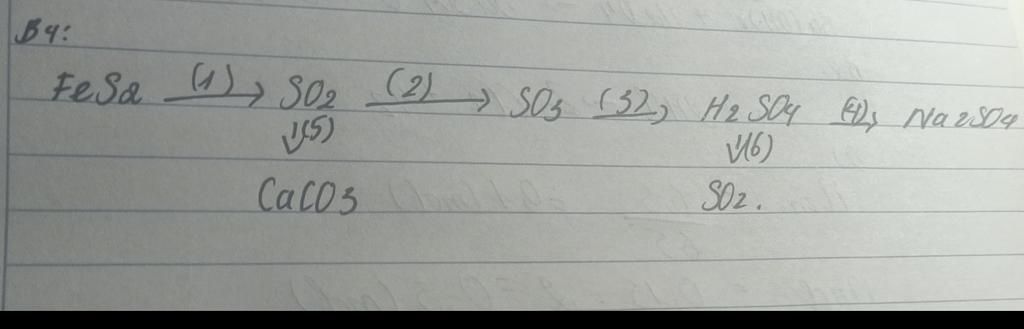 B4:
FeS2 (1) SO2 (2) SO3 (3) H2SO4 (4) Na2SO4
(5) (6)
CaCO3 SO2.